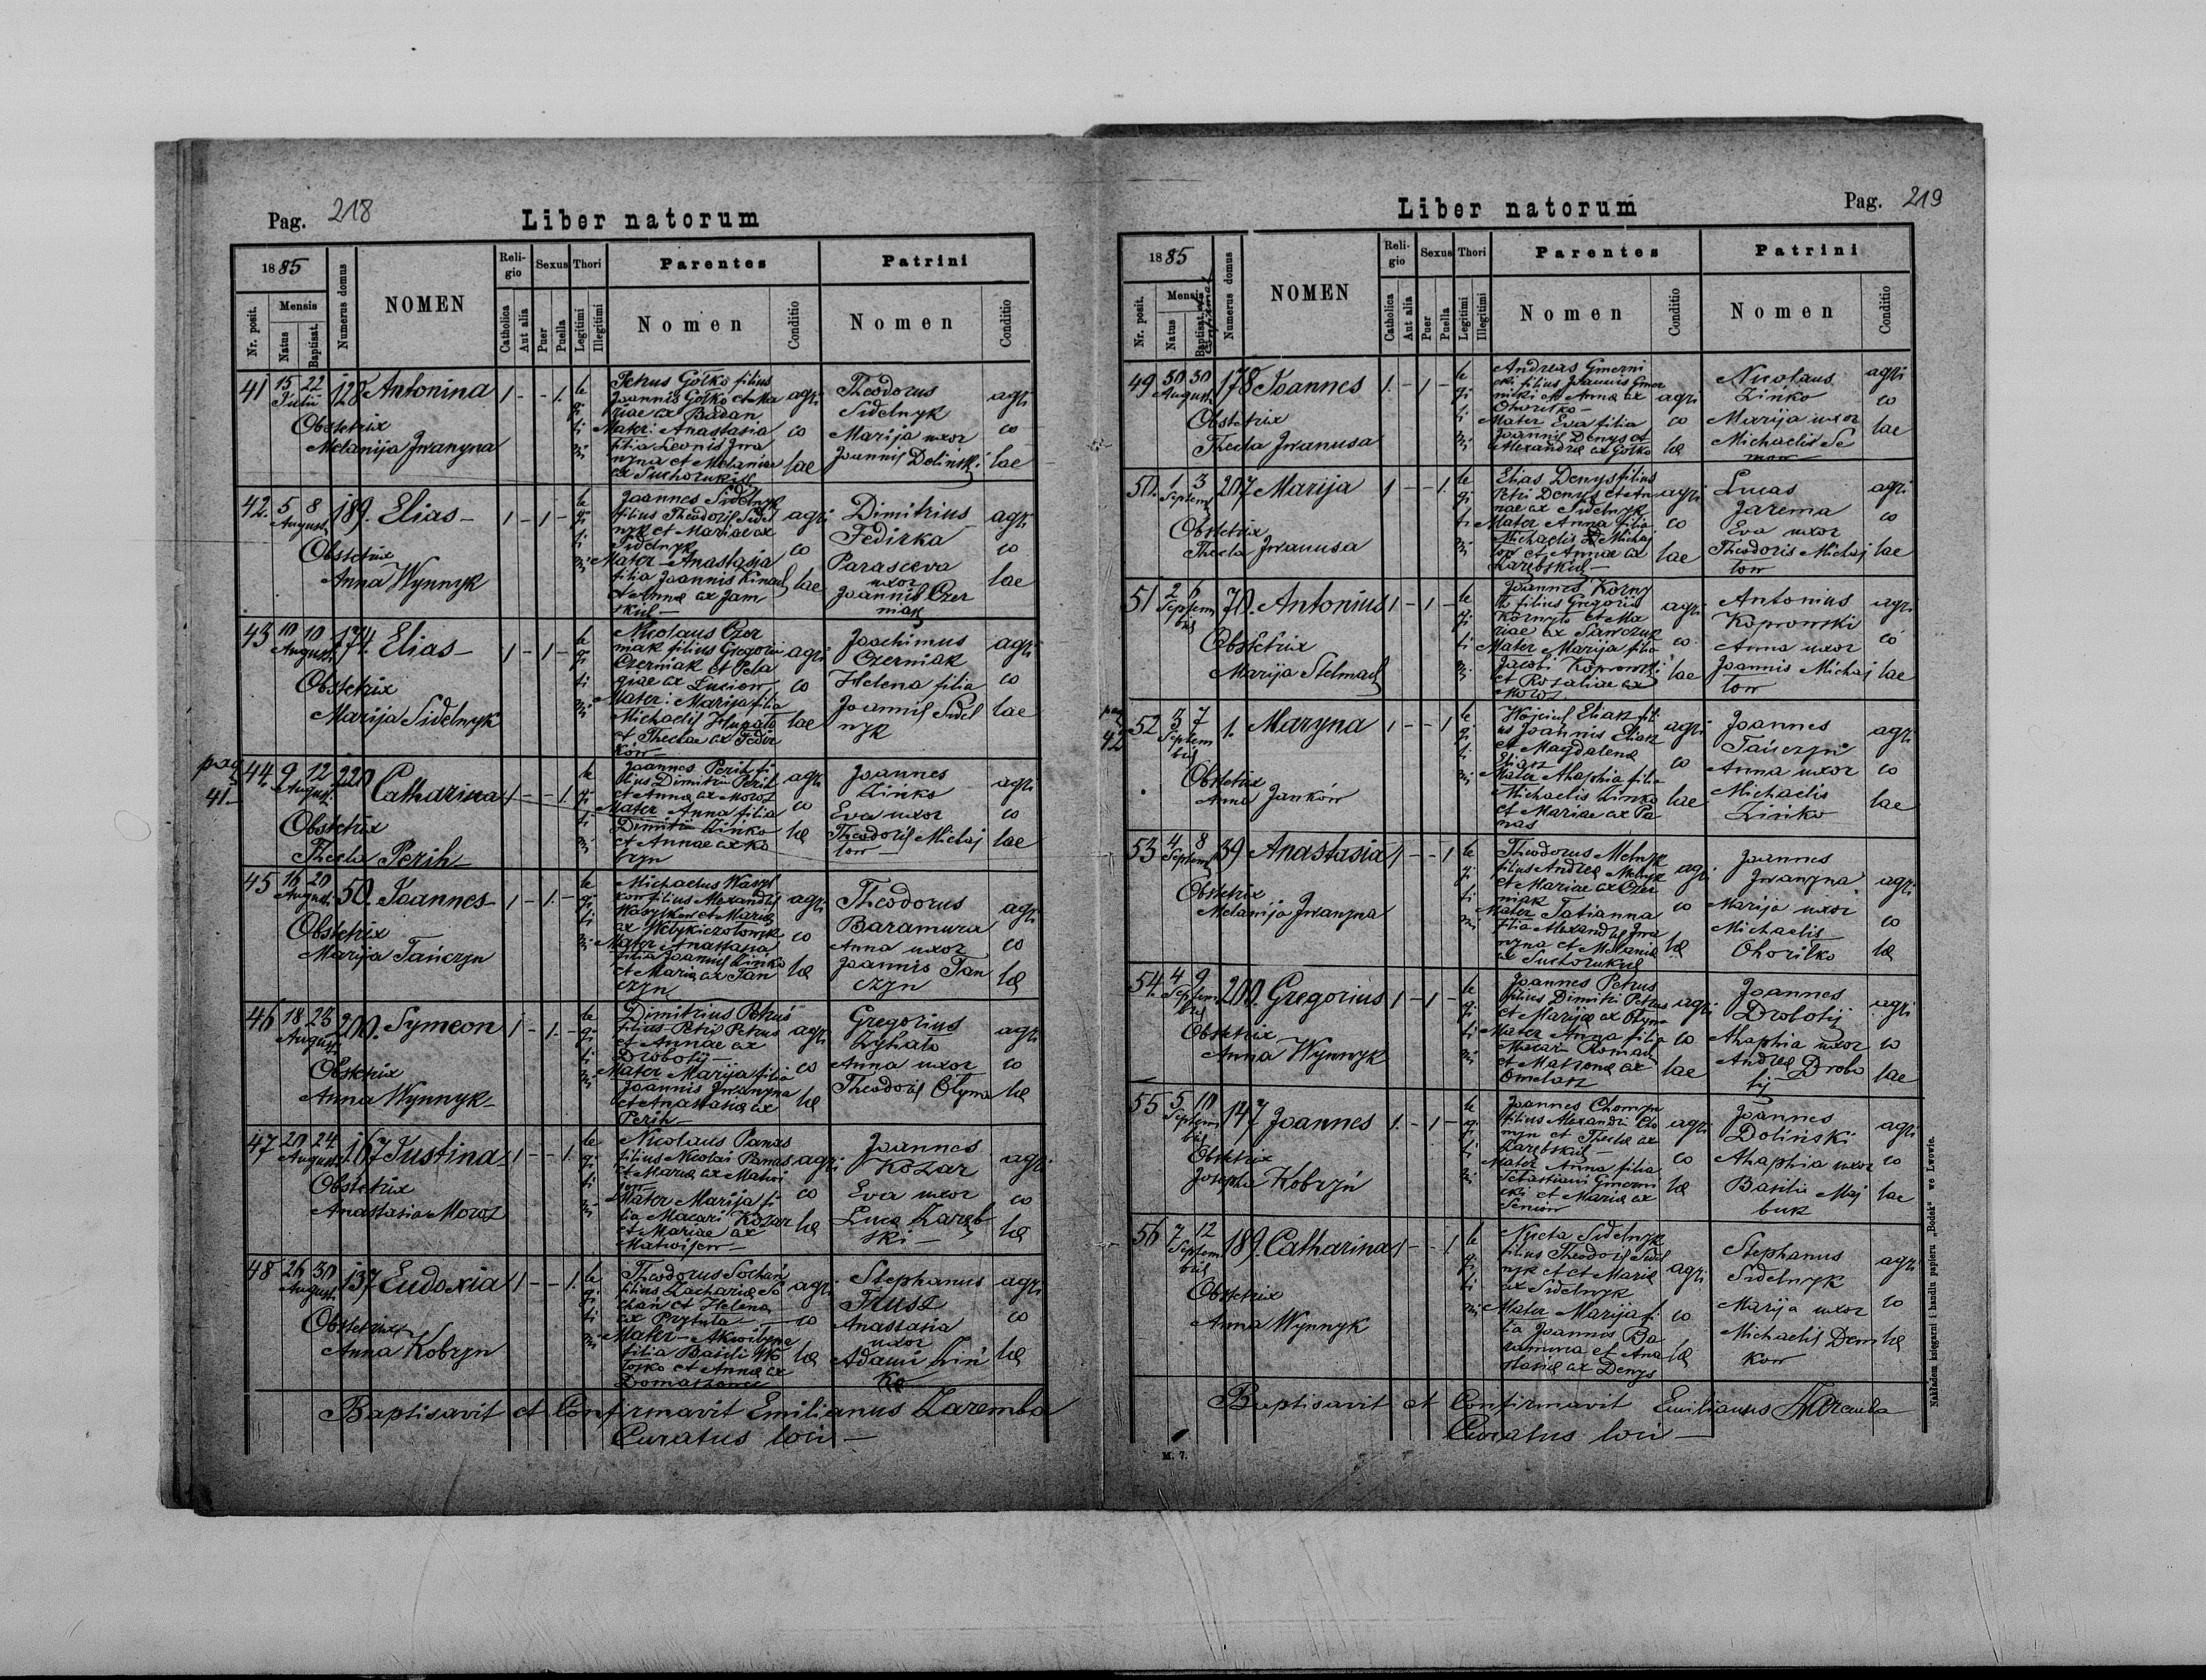 Pag. 218
Liber natorum
1885
Nr. posit.
Mensis
Natus
Baptisat.
Numerus domus
NOMEN
Religio
Catholica
Aut alia
Sexus
Puer
Puella
Thori
Legitimi
Illegitimi
Parentes
Nomen
Conditio
Patrini
Nomen
Conditio
41 15 22 128 Antonina 1 - - 1.
Julii
Obstetrix
Melanija Jwanyna
le
gi
ti
mi
Petrus Gołko filius
Joannis Gołko et Ma
riae ex Badan
Mater: Anastasia
filia Leonis Jwa
nyna et Melaniae
ex Suchorukiw
agri
co
lae
Theodorus
Sidelnyk
Marija uxor
Joannis Doliński
agri
co
lae
42. 5 8 189. Elias - 1 - 1 -
August.
Obstetrix
Anna Wynnyk
le
gi
ti
mi
Joannes Sidelnyk
filius Theodori Sidel
nyk et Mariae ex
Sidelnyk
Mater - Anastasia
filia Joannis Kinach
et Annæ ex Jam
skul -
agri
co
lae
Dimitrius
Fedirka
Parasceva
uxor
Joannis Czer
niak
agri
co
lae
43 10 10 174. Elias - 1 - 1 -
August.
Obstetrix
Marija Sidelnyk
le
gi
ti
mi
Nicolaus Czer
niak filius Gregorii
Czerniak et Pela
giae ex
Mater: Marija filia
Michaelis
et Theclae ex Fedir
ków -
agri
co
lae
Joachimus
Czerniak
Helena filia
Joannis Sidel
nyk
agri
co
lae
pag
41.
44. 9 12 220 Catharina 1 - - 1
August.
Obstetrix
Thecla Perih
le
gi
ti
mi
Joannes Perih fi
lius Dimitrii Perih
et Annæ ex Moroz
Mater Anna filia
Dimitri Zinko
et Annae ex Ko
bryn
agri
co
læ
Joannes
Zinko
Eva uxor
Theodoris Michaj
low -
agri
co
lae
45 16 20 50. Joannes - 1 - 1. -
August.
Obstetrix
Marija Tańczyn
le
gi
ti
mi
Michaelus Wasyl
kow filius Alexandri
Wasylkow et Mariæ
ex
Mater: Anastasia
filia Joannis Zinko
et Mariæ ex Tan
czyn
agri
co
læ
Theodorus
Baramura
Anna uxor
Joannis Tan
czyn
agri
co
læ
46 18 23 200. Symeon 1 - 1. -
August.
Obstetrix
Anna Wynnyk -
le
gi
ti
mi
Dimitrius Petrus
filius Petri Petrus
et Annae ex
Drobotij -
Mater Marija filia
Joannis Jwanyna
et Anastasiæ ex
Perih -
agri
co
læ
Gregorius
Cyhało
Anna uxor
Theodori Olyma
agri
co
læ
47 20 24 167 Justina - 1 - - 1.
August.
Obstetrix
Anastasia Moroz
le
gi
ti
mi
Nicolaus Panas
filius Nicolai Panas
et Mariæ ex Matwi
jow
Mater Marija fi
lia Macari Kozar
et Mariae ex
Matwijow -
agri
co
læ
Joannes
Kozar
Eva uxor
Lucæ Zaręb
ski -
agri
co
læ
48 26 30 137 Eudoxia 1 - - 1.
August.
Obstetrix
Anna Kobryn
le
gi
ti
mi
Theodorus Sochań
filius Zachariæ So
chań et Helenæ
ex Prytuła -
Mater -
filia Basili
et Annæ ex
agri
co
læ
Stephanus
Trusz
Anastasia
uxor
Adami Zin
ko
agri
co
læ
Baptisavit et Confirmavit Emilianus Zaremba
Curatus loci -
Liber natorum
Pag. 219
1885
Nr. posit.
Mensis
Natus
Baptisat. et confirmat
Numerus domus
NOMEN
Religio
Catholica
Aut alia
Sexus
Puer
Puella
Thori
Legitimi
Illegitimi
Parentes
Nomen
Conditio
Patrini
Nomen
Conditio
49 30 30 178 Joannes 1. - 1 -
August.
Obstetrix
Thecla Jwanusa
le
gi
ti
mi
Andreas Gmerni
cki filius Joannis Gmer
nicki et Annæ ex
Ohoriłko -
Mater Eva filia
Joannis Denys et
Alexandræ ex Gołko
agri
co
læ
Nicolaus
Zinko
Marija uxor
Michaelis Se
mow
agri
co
lae
50. 1 3 207 Marija 1 - - 1.
Septemb
Obstetrix
Thecla Jwanusa
le
gi
ti
mi
Elias Denys filius
Petri Denys et An
nae ex Sidelnyk
Mater Anna filia
Michaelis Michaj
low et Annae ex
Zarębskich -
agri
co
lae
Lucas
Jarema
Eva uxor
Theodoris Michaj
low
agri
co
lae
51 2 6 70. Antonius 1 - 1 -
Septem
bris
Obstetrix
Marija Stelmach
le
gi
ti
mi
Joannes Korny
ło filius Gregorii
Kornyło et Ma
riae ex Sawczuk
Mater Marija filia
Jacobi Koprowski
et Rosaliae ex
Moroz
agri
co
lae
Antonius
Koprowski
Anna uxor
Joannis Michaj
low
agri
co
lae
pag
42
52 3 7 1. Maryna 1 - - 1
Septem
bris
Obstetrix
Anna Janków
le
gi
ti
mi
Wojciech Eliasz fili
us Joannis Eliasz
et Magdalenæ
Eliasz
Mater Ahaphia filia
Michaelis Zinko
et Mariae ex Pa
nas
agri
co
lae
Joannes
Tańczyn
Anna uxor
Michaelis
Zinko
agri
co
lae
53 4 8 39 Anastasia 1 - - 1
Septemb
Obstetrix
Melanija Jwanyna
le
gi
ti
mi
Theodorus Melnyk
filius Andreæ Melnyk
et Mariae ex Czer
niak
Mater Tatianna
filia Alexandri Jwa
nyna et Melaniæ
ex Suchorukiw
agri
co
læ
Joannes
Jwanyna
Marija uxor
Michaelis
Ohoriłko
agri
co
læ
54. 4 9 200. Gregorius 1 - 1 -
Septem
bris
Obstetrix
Anna Wynnyk
le
gi
ti
mi
Joannes Petrus
filius Dimitri Petrus
et Marijæ ex Olyma
Mater Anna filia
Macari Romach
et Matronæ ex
Omelasz
agri
co
lae
Joannes
Drobotij
Ahaphia uxor
Andreæ Drobo
tij -
agri
co
lae
55 5 10 147 Joannes 1. - 1 -
Septem
bris
Obstetrix
Josepha Kobryń
le
gi
ti
mi
Joannes Chomyn
filius Alexandri Cho
myn et Theclæ ex
Zarębskich -
Mater Anna filia
Sebastiani Gmerni
cki et Mariæ ex
Seniow
agri
co
læ
Joannes
Doliński
Ahaphia uxor
Basilii Maj
buk
agri
co
lae
56 7 12 189. Catharina 1 - - 1
Septem
bris
Obstetrix
Anna Wynnyk
le
gi
ti
mi
Niceta Sidelnyk
filius Theodori Sidel
nyk et Mariæ
ex Sidelnyk
Mater Marija fi
lia Joannis Ba
ramura et Ana
stasiæ ex Denys
agri
co
læ
Stephanus
Sidelnyk
Marija uxor
Michaelis Dem
kow
agri
co
læ
Baptisavit et Confirmavit Emilianus Zaremba
Curatus loci -
M. 7.
Nakładem księgarni i handlu papieru „Bodek" we Lwowie.